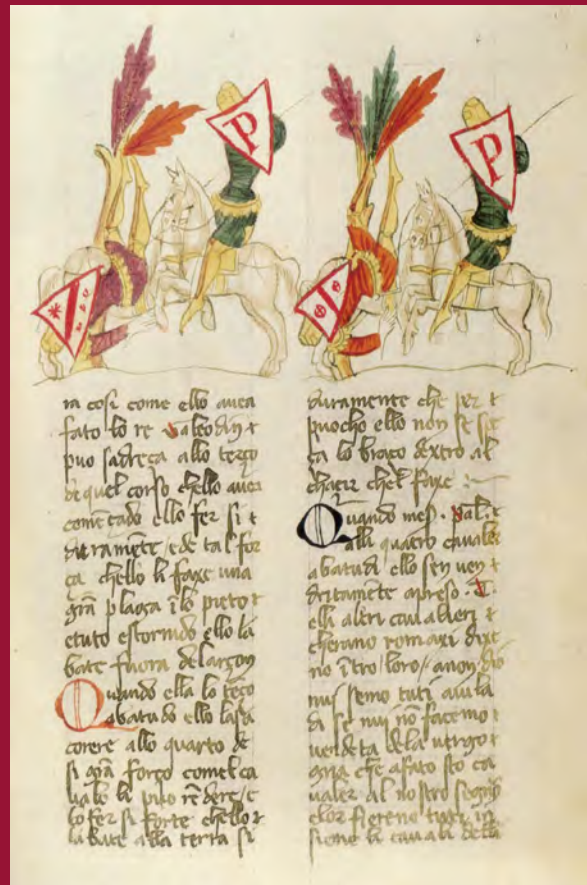 P
P
ra cosi come ello auea
fato lo re
puo sadreça allo terço
de quel corso chello auer
comẽçado ello fer si &
duramẽte / e de tal for
ça chello li faxe una
grã plaga ĩ lo pieto &
e tuto estornido ello la
bate fuora de larçon
Quando ella lo terço
abatudo ello lassa
corere allo quarto de
si grã força comel ca
uallo li puo rẽdere / e
lo fer si forte chello &
la bate alla terra si
duramente che per &
puocho ello non se spe
ça lo braço dextro al
chaçir chel faxe
Quando mes. Gal. &
alli quatro caualier
abatudi ello sen ven &
dritamẽte apreso . T.
elli altri caualieri &
cherano romaxi dixe
no ĩtro loro / a non dio
nui semo tuti auila
di se nui nõ facemo &
uendeta dela uergo &
gna che afato sto ca
ualer al nostro segno
elor fiereno tuti in
sieme li cauali delli